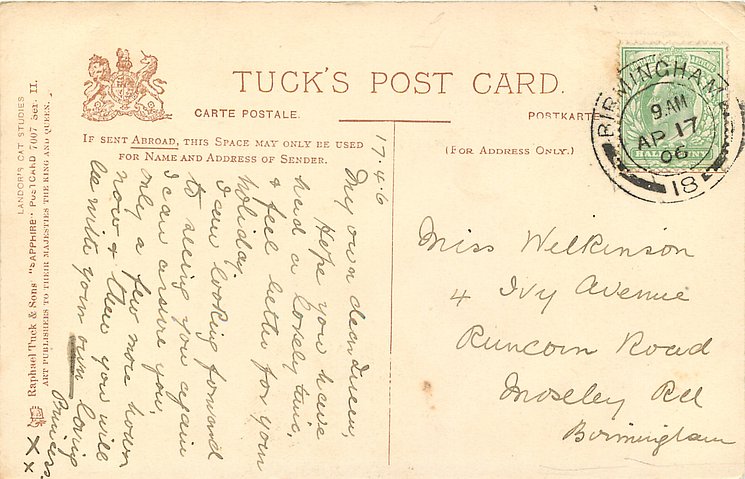 TUCK'S POST CARD.
CARTE POSTALE.
POSTKARTE
IF SENT ABROAD, THIS SPACE MAY ONLY BE USED
FOR NAME AND ADDRESS OF SENDER.
(FOR ADDRESS ONLY.)
BIRMINGHAM
9. AM
AP 17
06
18
HALFPENNY
17.4.6
My own dear Queen,
Hope you have
had a lovely time,
& feel better for your
holiday.
I am looking forward
to seeing you again
I can assure you,
only a few more hours
now & then you will
be with your own loving
Princess.
x
x
Miss Wilkinson
4 Ivy Avenue
Runcorn Road
Moseley Rd
Birmingham
LANDOR'S CAT STUDIES
Raphael Tuck & Sons' "SAPPHIRE" POSTCARD 7007 Set II.
ART PUBLISHERS TO THEIR MAJESTIES THE KING AND QUEEN.